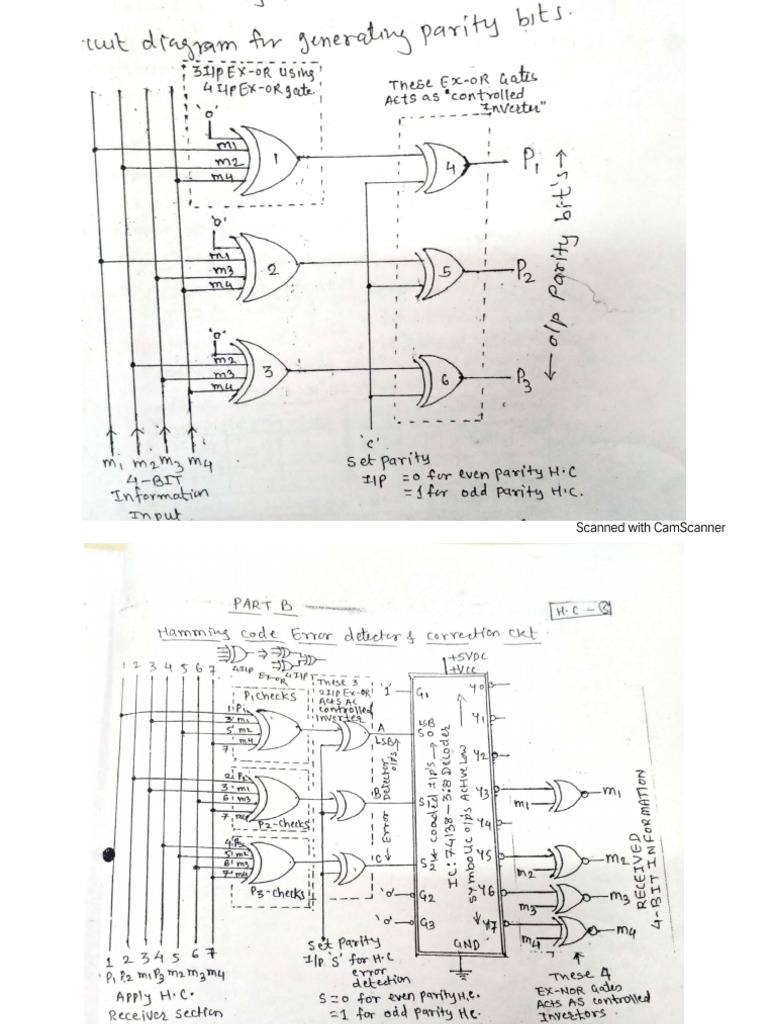 rcuit diagram for generating parity bits.
3I/p EX-OR Using
4 I/p EX-OR gate.
These EX-OR Gates
Acts as "controlled
Inverter"
'0'
m1
m2
m4
1
4
P1
'0'
m1
m3
m4
2
5
P2
'0'
m2
m3
m4
3
6
P3
← o/p Parity bit's →
'C'
m1 m2 m3 m4
4-BIT
Information
Input
Set parity
I/P =0 for even parity H.C
=1 for odd parity H.C.
Scanned with CamScanner
PART B
H.C - 6
Hamming code Error detector & correction ckt.
4I/p
EX-OR
4I/P
+5VDC
+Vcc
1 2 3 4 5 6 7
P1 checks
These 3
2I/p EX-OR
Acts AC
controlled
Inverter
1 P1
3 m1
5 m2
7 m4
A
LSB
'1'
G1
LSB
S0
2 P2
3 m1
6 m3
7 m4
P2-checks
B
S1
4 P3
5 m2
6 m3
7 m4
P3-checks
C
S2
← Error Detector o/p's →
'0'
G2
'0'
G3
IC: 74138 - 3:8 Decoder
Symbolic o/ps Active Low
Y0
Y1
Y2
Y3
Y4
Y5
Y6
Y7
GND
m1
m1
m2
m2
m3
m3
m4
m4
RECEIVED
4-BIT INFORMATION
1 2 3 4 5 6 7
P1 P2 m1 P3 m2 m3 m4
Apply H.C.
Receiver section
Set Parity
I/p 'S' for H.C
error
detection
S=0 for even parity H.C.
=1 for odd parity HC.
These 4
EX-NOR Gates
Acts AS controlled
Invertors.